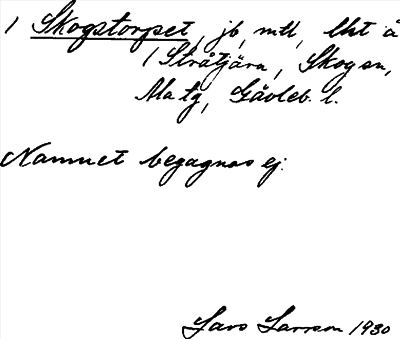 1 Skogstorpet, jb, mtl, lht å
1 Stråtjära, Skog sn,
Ma tg, Gävleb. l.
Namnet begagnas ej.
Lars Larsson 1930